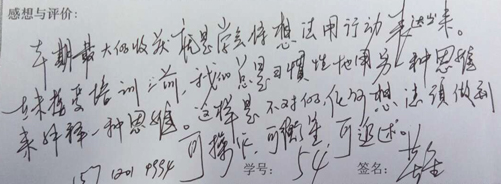 感想与评价:
本期最大的收获就是学会将想法用行动表达出来。
在未接受培训之前,我们总是习惯性地用另一种思维
来解释一种思维。这样是不对的,任何想法须做到
可操作,可衡量,可追述。
157 1201 9994 学号: 54 签名: